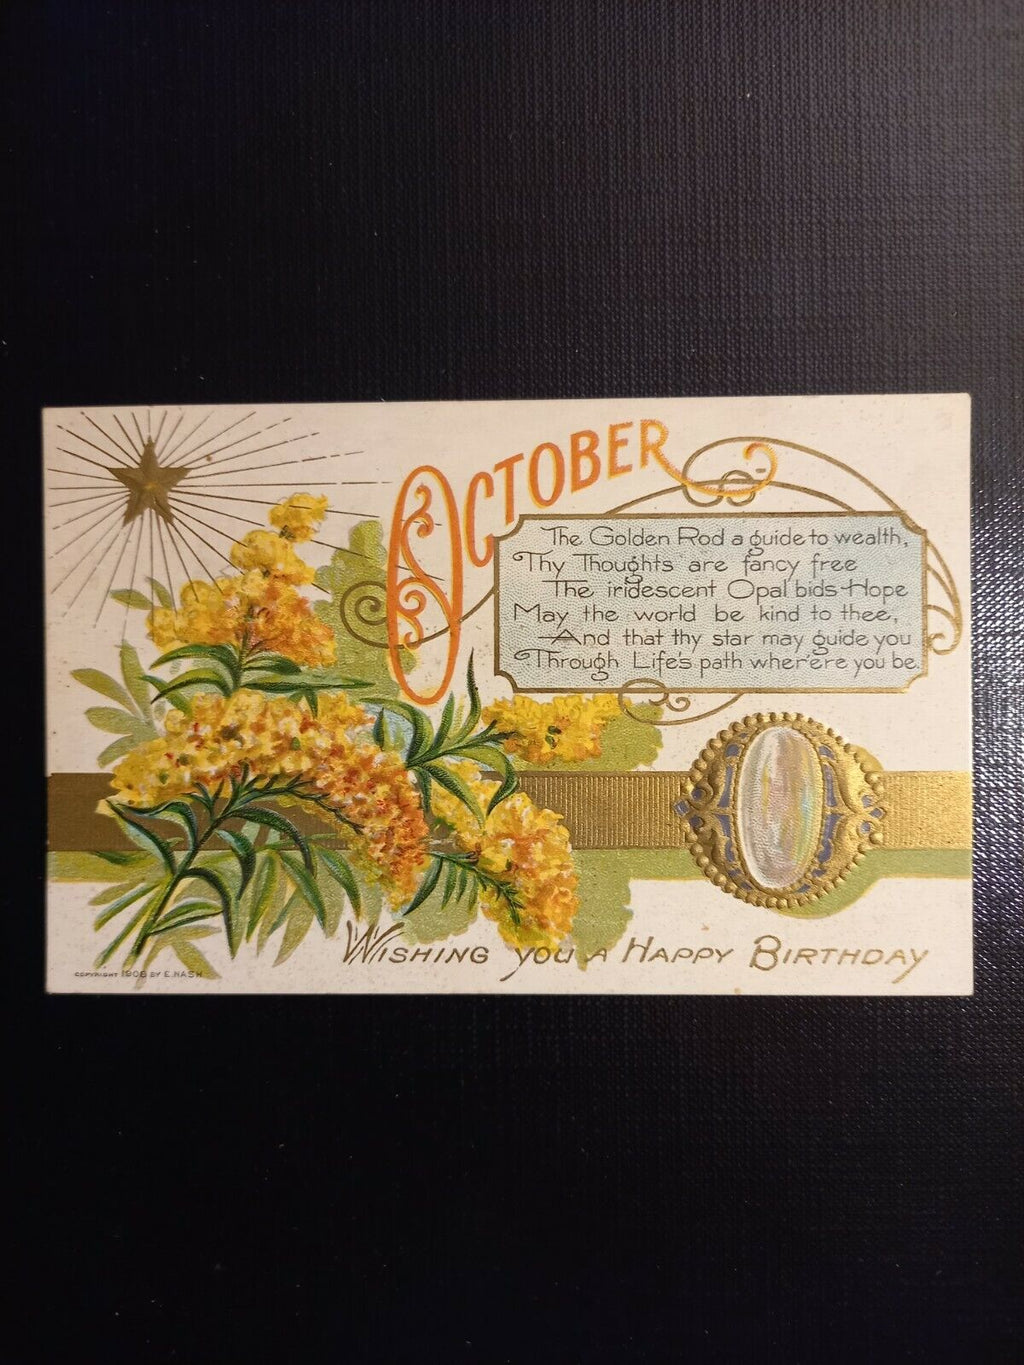 OCTOBER
The Golden Rod a guide to wealth,
Thy Thoughts are fancy free
The iridescent Opal bids Hope
May the world be kind to thee,
And that thy star may guide you
Through Life's path wher'ere you be.
WISHING YOU A HAPPY BIRTHDAY
COPYRIGHT 1908 BY E. NASH